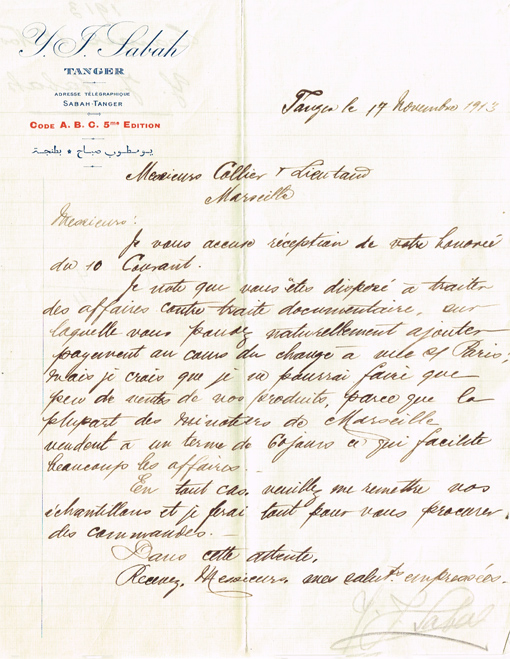 Y. J. Sabah
TANGER
ADRESSE TÉLÉGRAPHIQUE
SABAH-TANGER
CODE A. B. C. 5me EDITION
يوسطوب صباح • بطنجة
Tanger le 17 Novembre 1913
Messieurs Collier & Lieutaud
Marseille
Messieurs:
Je vous accuse réception de votre honorée
du 10 Courant.
Je note que vous êtes disposé à traiter
des affaires contre traite documentaire, sur
laquelle vous pouvez naturellement ajouter
payement au cours du change à vue s/ Paris;
mais je crois que je ne pourrai faire que
peu de ventes de vos produits, parce que la
plupart des minotiers de Marseille
vendent à un terme de 60 jours ce qui facilite
beaucoup les affaires.
En tout cas, veuillez me remettre vos
échantillons et je ferai tout pour vous procurer
des commandes.
Dans cette attente,
Recevez, Messieurs, mes salutns empressées.
Y. J. Sabah